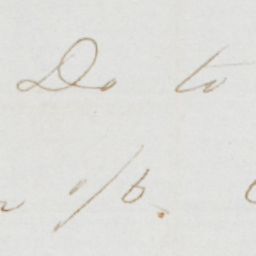 Do to
1/6.